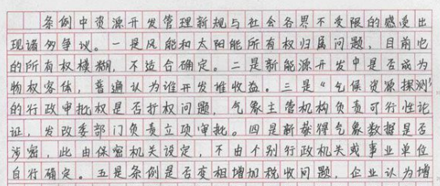 条例中资源开发管理新规与社会各界不变限的感觉出
现诸多争议。一是风能和太阳能所有权归属问题,目前它
的所有权模糊,不适合确定。二是新能源开发中是否成为
物权客体,普遍认为谁开发谁收益。三是“气候资源探测”
的行政审批权是否扩权问题,气象主管机构负责可行性论
证,发改委部门负责立项审批。四是新获得气象数据是否
涉密,此由保密机关设定,不由个别行政机关或事业单位
自行确定。五是条例是否变相增加税收问题,企业认为增